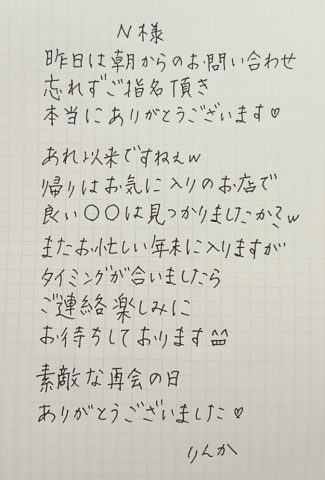 N様
昨日は朝からのお問い合わせ
忘れずご指名頂き
本当にありがとうございます♡
あれ以来ですねぇw
帰りはお気に入りのお店で
良い〇〇は見つかりましたか?w
またお忙しい年末に入りますが
タイミングが合いましたら
ご連絡楽しみに
お待ちしております^^
素敵な再会の日
ありがとうございました♡
りんか